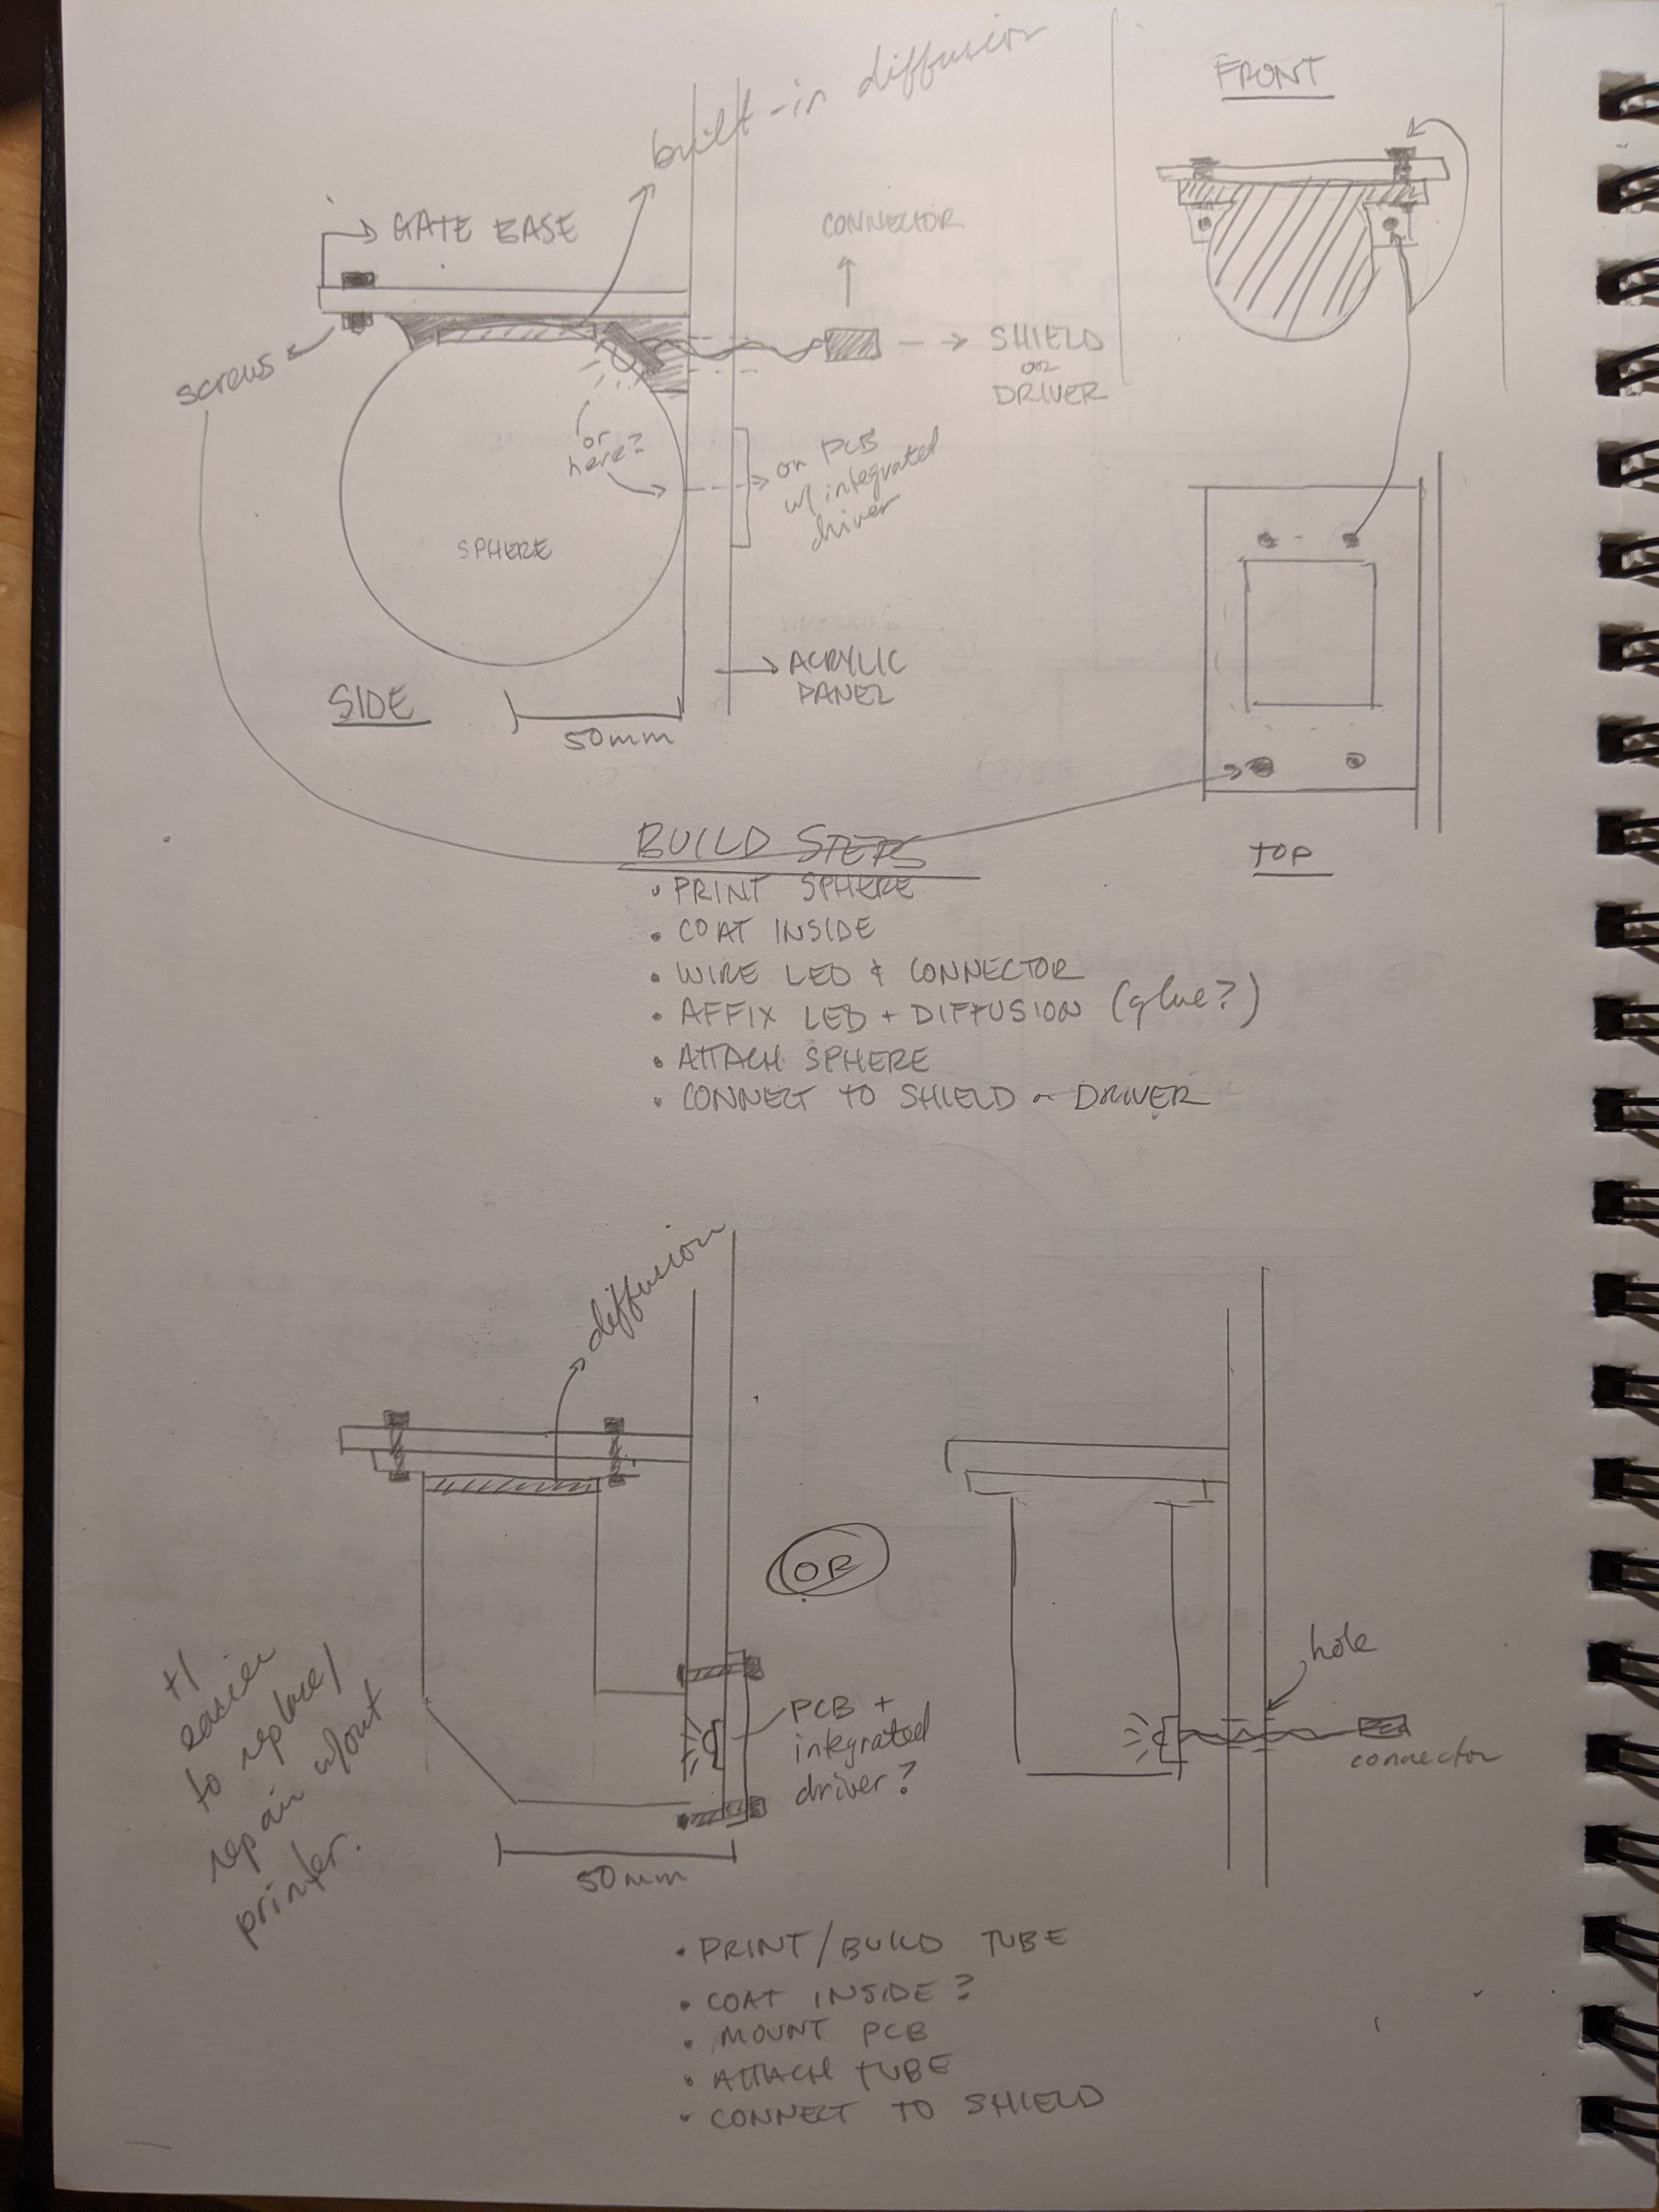 built-in diffusion
FRONT
GATE BASE
CONNECTOR
screws
SHIELD
OR
DRIVER
or
here?
on PCB
w/ integrated
driver
SPHERE
ACRYLIC
PANEL
SIDE
50mm
TOP
BUILD STEPS
• PRINT SPHERE
• COAT INSIDE
• WIRE LED & CONNECTOR
• AFFIX LED + DIFFUSION (glue?)
• ATTACH SPHERE
• CONNECT TO SHIELD or DRIVER
diffusion
OR
hole
+1
easier
to replace/
repair w/out
printer.
PCB +
integrated
driver?
connector
50mm
• PRINT/BUILD TUBE
• COAT INSIDE?
• MOUNT PCB
• ATTACH TUBE
• CONNECT TO SHIELD